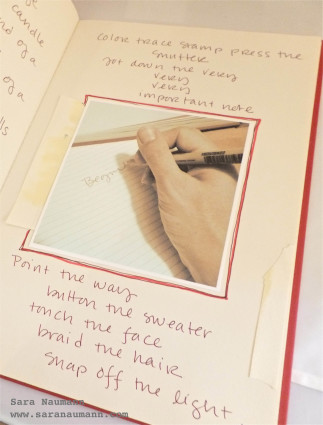 candle
of a
of a
color trace stamp press the
shutter
jot down the very
very
very
important note
Begin
Point the way
button the sweater
touch the face
braid the hair
snap off the light.
Sara Naumann
www.saranaumann.com